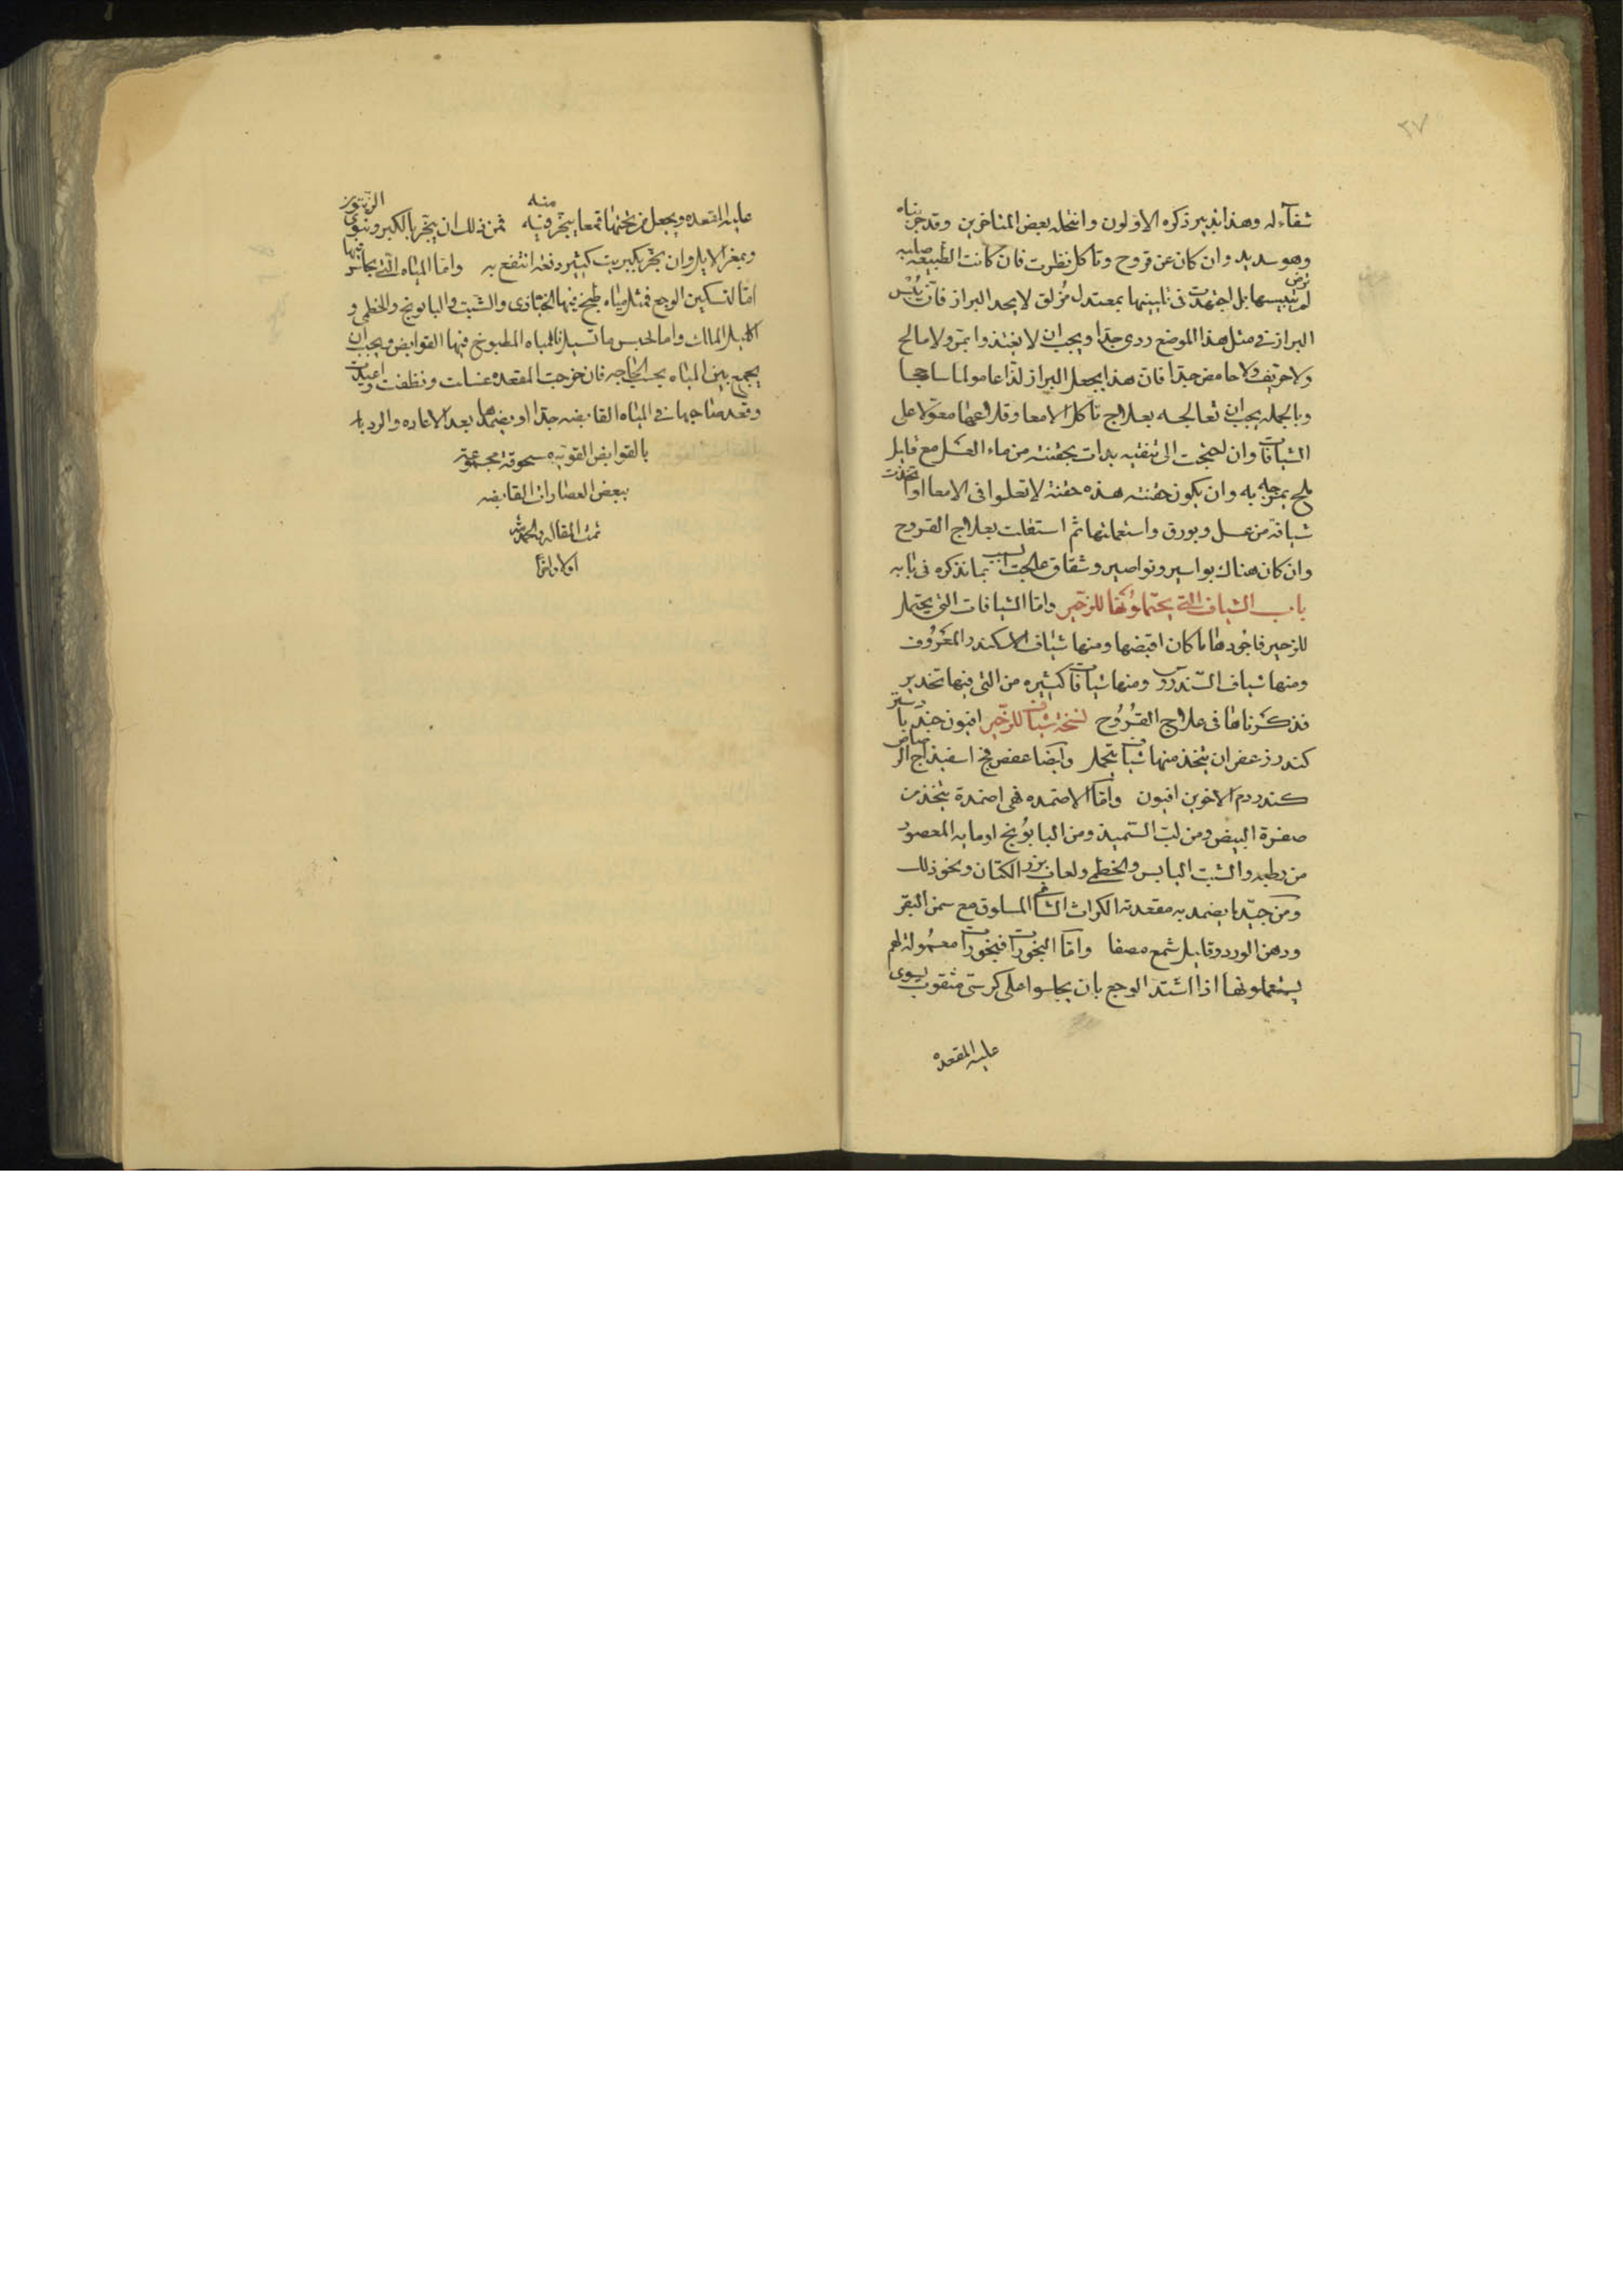 ٣٧
شفاء له وهذا تدبير ذكره الاولون وانتحله بعض المتاخرين وقد جربناه
وهو سديد وان كان عن قروح وتاكل نظرت فان كانت الطبيعة صلبه
لم ترض بيبسها بل اجتهدت فى تليينها بمعتدل مزلق لا يحد البراز فان يبس
البراز فى مثل هذا الموضع ردى جدا ويجب ان لا يغتذوا بمر ولا مالح
ولا حريف ولا حامض جدا فان هذا يجعل البراز لذاعا مولما ساحجا
وبالجمله يجب ان تعالجه بعلاج تاكل الامعا وقلاعها معولا على
الشيافات وان احتجت الى تنقيه بدات بحقنته من ماء العسل مع قليل
ملح يمزجه به وان يكون حقنته هذه حقنة لا تعلوا فى الامعا او اتخذت
شيافة من عسل وبورق واستعملتها ثم استغلت بعلاج القروح
وان كان هناك بواسير ونواصير وشقاق عالجت السبب بما نذكره فى بابه
باب الشياف التى يحتملونها للزحير واما الشيافات التى يحتمل
للزحير فاجودها ما كان اقبضها ومنها شياف الاسكندر المعروف
ومنها شياف السندروس ومنها شيافات كثيره من التى فيها تخدير
قد ذكرناها فى علاج القروح نسخة شياف للزحير افيون جندبادستر
كندر زعفران يتخذ منها شياف يتحمل وايضا عفص فج اسفيذاج الرصاص
كندر دم الاخوين افيون واما الاضمده فهى اضمدة يتخذ من
صفرة البيض ومن لب السميذ ومن البابونج او مايه المعصور
من رطبه والشبت اليابس والخطمى ولعاب بزر الكتان ونحو ذلك
ومن جيد ما يضمد به مقعدته الكراث الشامى المسلوق مع سمن البقر
ودهن الورد وقليل شمع مصفا واما البخورات فبخورات معمولة لهم
يستعملونها اذا اشتد الوجع بان يجلسوا على كرسى مثقوب يسوى
عليه المقعده
عليه المقعده ويجعل من تحتها قمعا يبخر فيه منه فمن ذلك ان يبخر بالكبر ونوى الزيتون
وببعر الابل وان بخر بكبريت كثير دفعة انتفع به واما المياه التى يجلس فيها
اما لتسكين الوجع فمثل مياه طبخ فيها الخبازى والشبت والبابونج والخطمى و
اكليل الملك واما لحبس ما تسيل فالمياه المطبوخ فيها القوابض ويجب ان
يجمع بين المياه بحسب الحاجه فان خرجت المقعده غسلت ونظفت واعيدت
وقعد صاحبها فى المياه القابضه جدا او يضمدها بعد الاعاده والرد بل
بالقوابض القويه مسحوقة مجموعة
ببعض العصارات القابضه
تمت المقاله والحمد لله
اولا واخرا